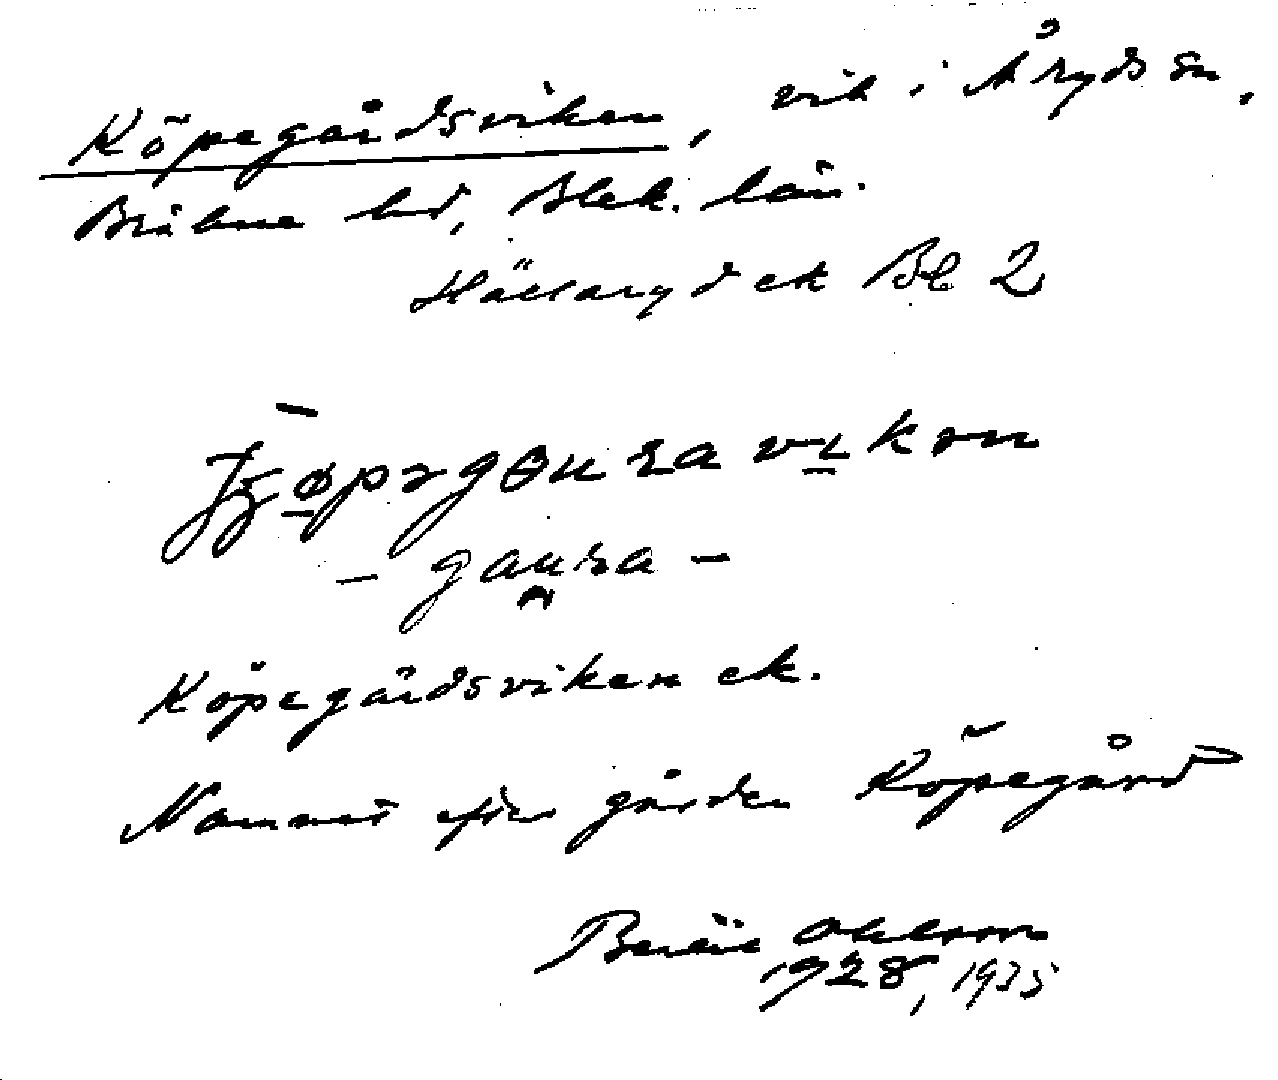 Köpegårdsviken, vik i Åryds sn,
Bräkne hd, Blek. län.
Hällaryd ek Bl 2
Köpegårdsviken ek.
Namnet efter gården Köpegård
Bertil Ohlsson
1928, 1935